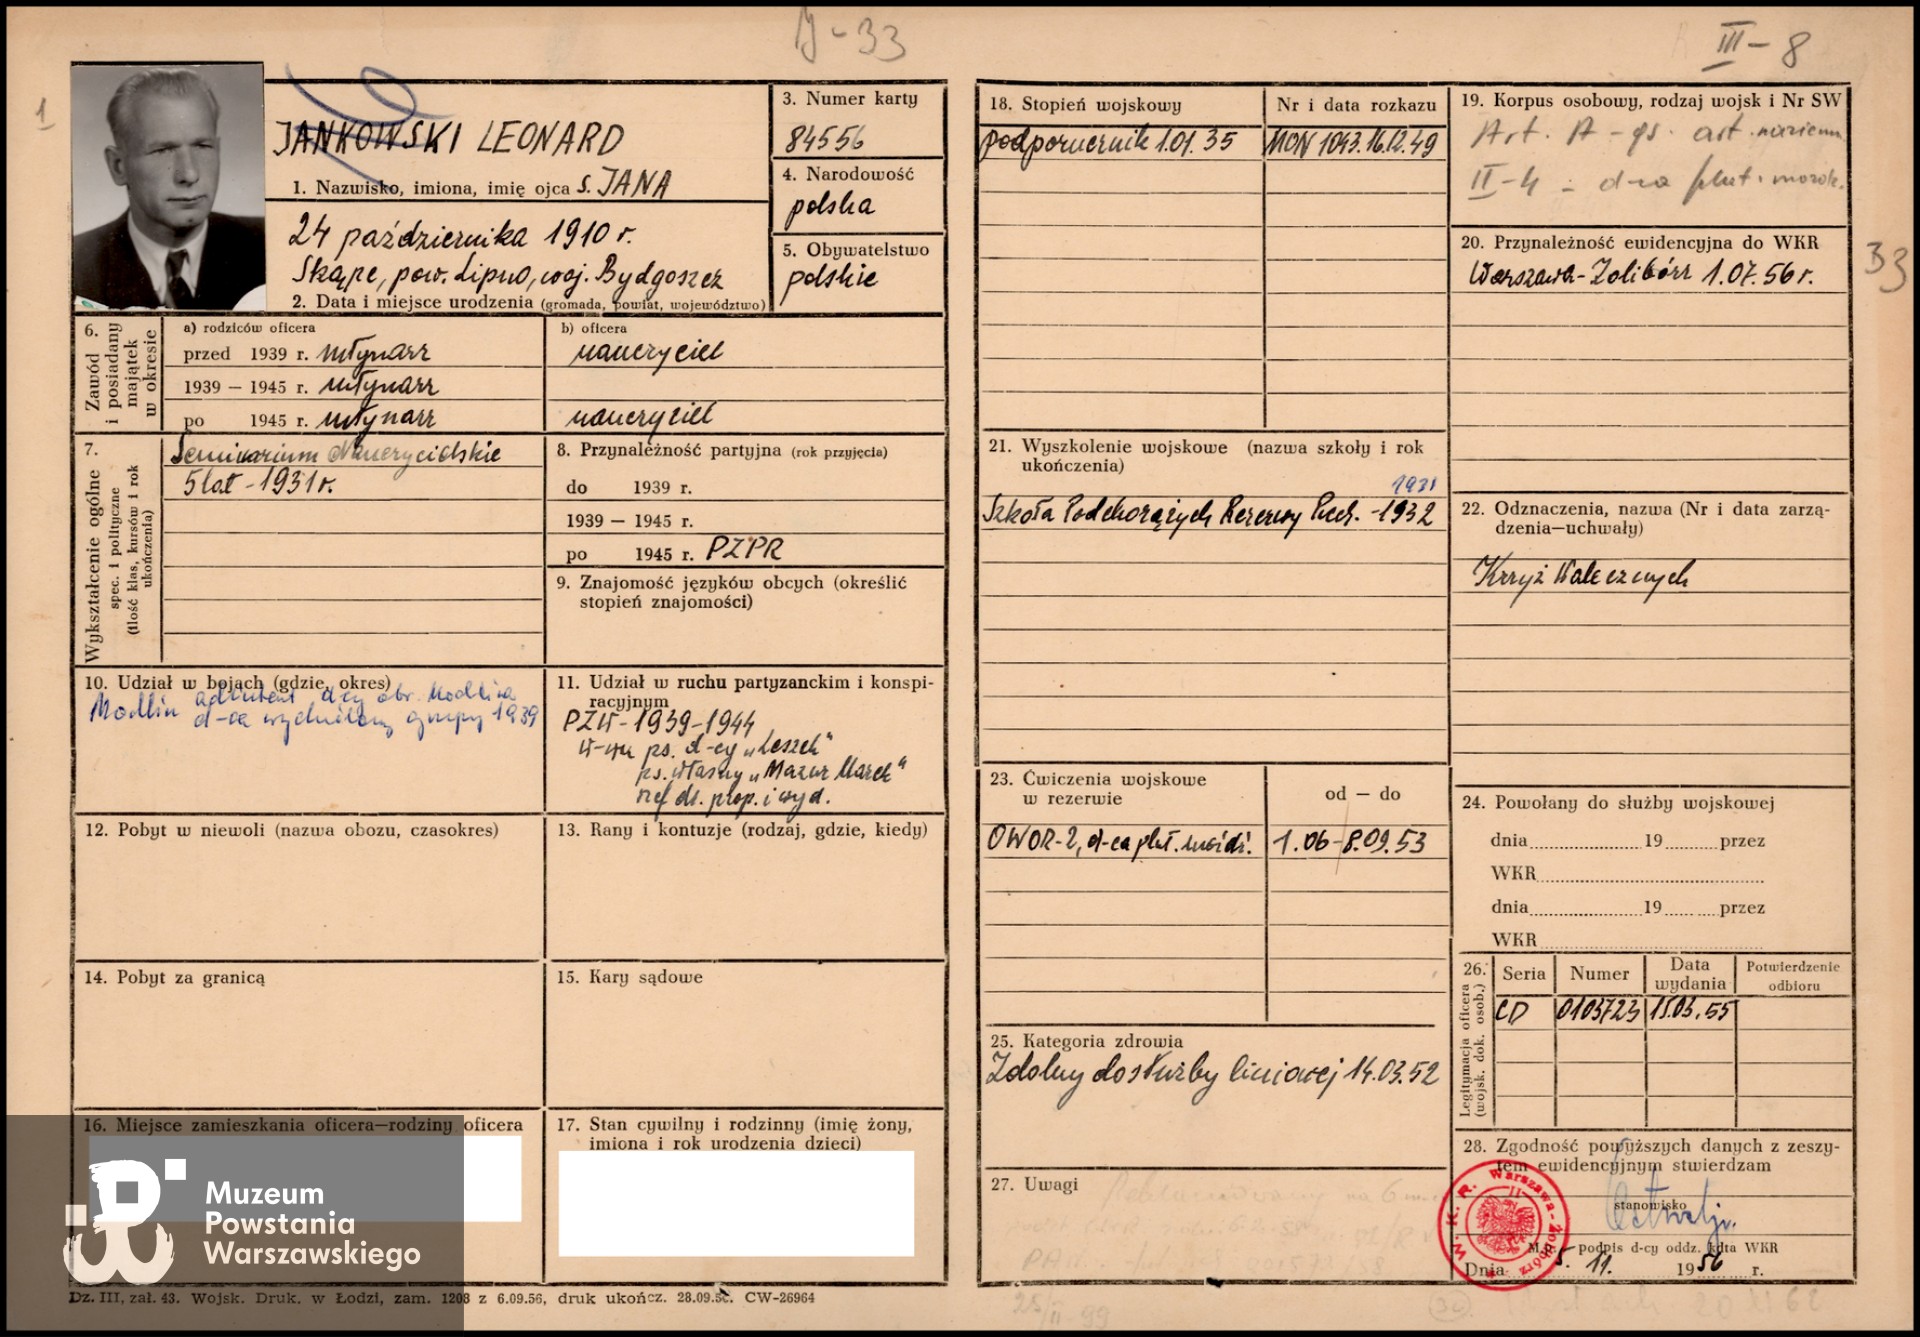 J-33
III-8
1
JANKOWSKI LEONARD
1. Nazwisko, imiona, imię ojca s. JANA
24 października 1910 r.
Skąpe, pow. Lipno, woj. Bydgoszcz
2. Data i miejsce urodzenia (gromada, powiat, województwo)
3. Numer karty
84556
4. Narodowość
polska
5. Obywatelstwo
polskie
6. Zawód i posiadany majątek w okresie
a) rodziców oficera
przed 1939 r. młynarz
1939 — 1945 r. młynarz
po 1945 r. młynarz
b) oficera
nauczyciel
nauczyciel
7. Wykształcenie ogólne
spec. i polityczne
(ilość klas, kursów i rok
ukończenia)
Seminarium Nauczycielskie
5 lat - 1931 r.
8. Przynależność partyjna (rok przyjęcia)
do 1939 r.
1939 — 1945 r.
po 1945 r. PZPR
9. Znajomość języków obcych (określić
stopień znajomości)
10. Udział w bojach (gdzie, okres)
Modlin adiutant d-cy obr. Modlina
d-ca wydzielonej grupy 1939
11. Udział w ruchu partyzanckim i konspi-
racyjnym
PZW - 1939-1944
ps. d-cy „Leszek"
ps. własny „Mazur Marek"
ref. ds. prop. i wyd.
12. Pobyt w niewoli (nazwa obozu, czasokres)
13. Rany i kontuzje (rodzaj, gdzie, kiedy)
14. Pobyt za granicą
15. Kary sądowe
16. Miejsce zamieszkania oficera—rodziny oficera
17. Stan cywilny i rodzinny (imię żony,
imiona i rok urodzenia dzieci)
Muzeum
Powstania
Warszawskiego
Dz. III, zał. 43. Wojsk. Druk. w Łodzi, zam. 1208 z 6.09.56, druk ukończ. 28.09.56. CW-26964
18. Stopień wojskowy
Nr i data rozkazu
podporucznik 1.01.35
MON 1043.16.12.49
19. Korpus osobowy, rodzaj wojsk i Nr SW
Art. A - gs. art. naziemn
II-4 - d-ca plut. moźdz.
20. Przynależność ewidencyjna do WKR
Warszawa-Żoliborz 1.07.56 r.
33
21. Wyszkolenie wojskowe (nazwa szkoły i rok
ukończenia)
1931
Szkoła Podchorążych Rezerwy Piech. -1932
22. Odznaczenia, nazwa (Nr i data zarzą-
dzenia—uchwały)
Krzyż Walecznych
23. Ćwiczenia wojskowe
w rezerwie
od — do
OWOR-2, d-ca plut. moźdź.
1.06-8.09.53
24. Powołany do służby wojskowej
dnia 19 przez
WKR
dnia 19 przez
WKR
25. Kategoria zdrowia
Zdolny do służby liniowej 14.03.52
26. Legitymacja oficera
(wojsk. dok. osob.)
Seria
Numer
Data
wydania
Potwierdzenie
odbioru
CD
0103723
15.03.55
27. Uwagi
28. Zgodność powyższych danych z zeszy-
tem ewidencyjnym stwierdzam
stanowisko
W. K. R. Warszawa-Żoliborz
M.p. podpis d-cy oddz. kdta WKR
Dnia 5. 11. 1956 r.
25/II-99